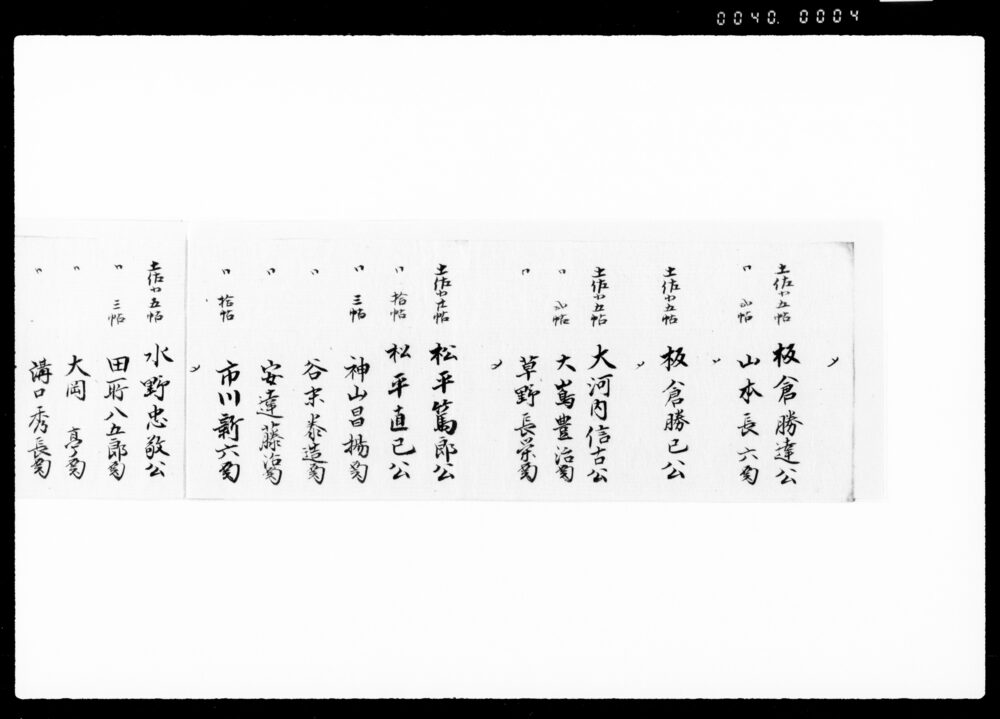 0040. 0004
土佐廿五帖 板倉勝達公
〃 弐帖 山本長六殿
土佐廿五帖 板倉勝已公
土佐廿五帖 大河内信古公
〃 弐帖 大嶌豊治殿
〃 草野長栄殿
土佐廿五帖 松平篤郎公
〃 拾帖 松平直已公
〃 三帖 神山昌揚殿
〃 谷末泰造殿
〃 安達藤治殿
〃 拾帖 市川新六殿
土佐廿五帖 水野忠敬公
〃 三帖 田所八五郎殿
〃 大岡 殿
〃 溝口秀長殿